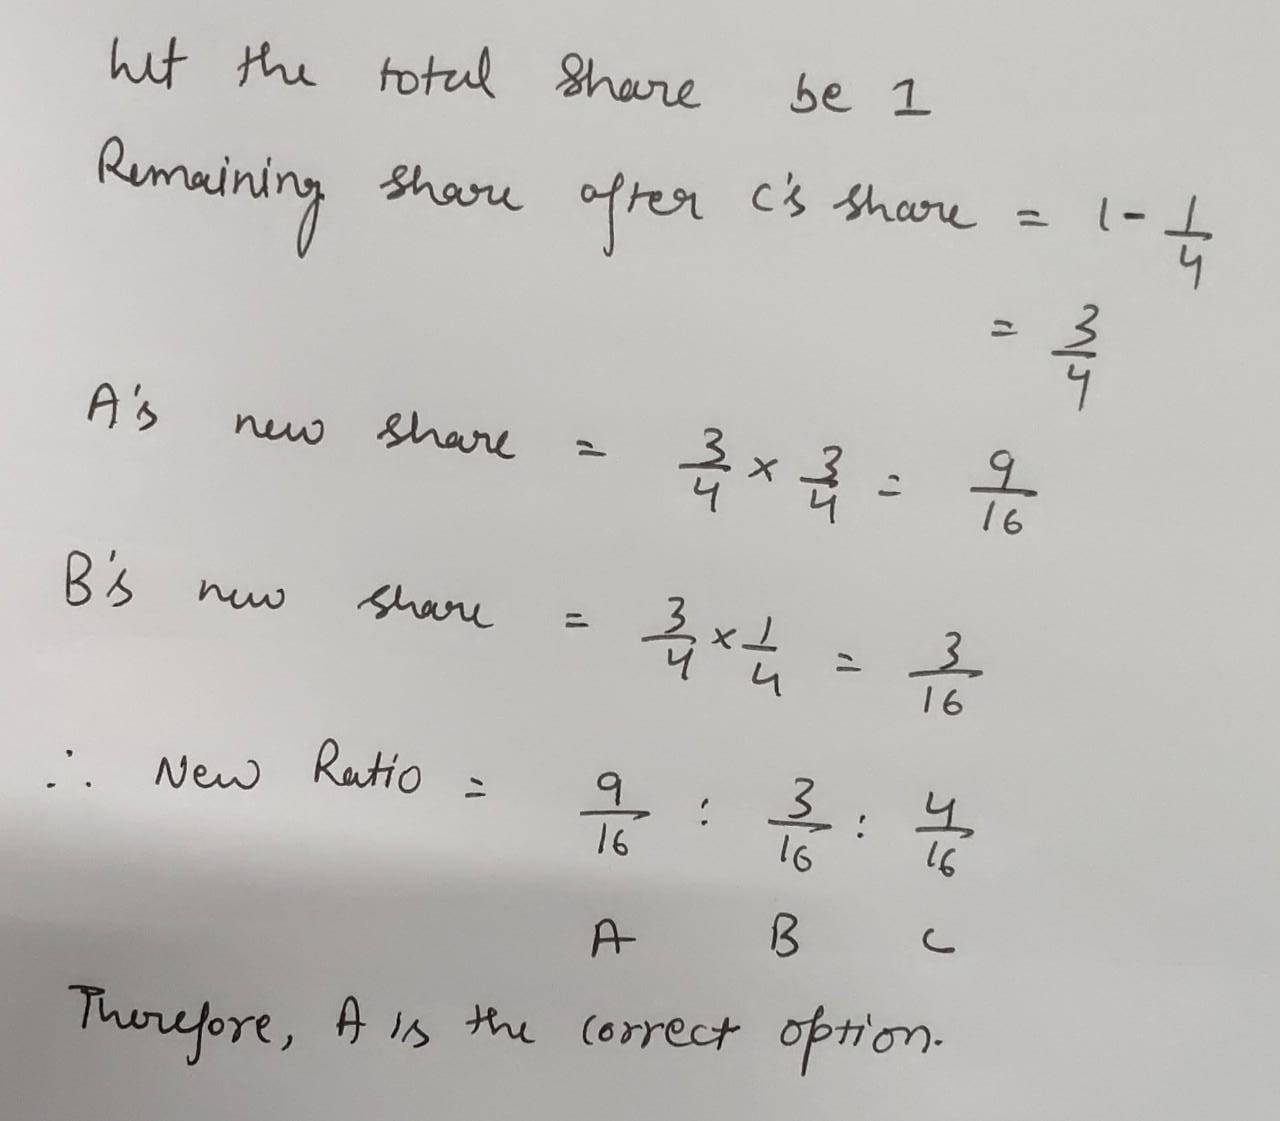 Let the total share be 1
Remaining share after C's share = 1 - 1/4
= 3/4
A's new share = 3/4 × 3/4 = 9/16
B's new share = 3/4 × 1/4 = 3/16
∴ New Ratio = 9/16 : 3/16 : 4/16
A B C
Therefore, A is the correct option.